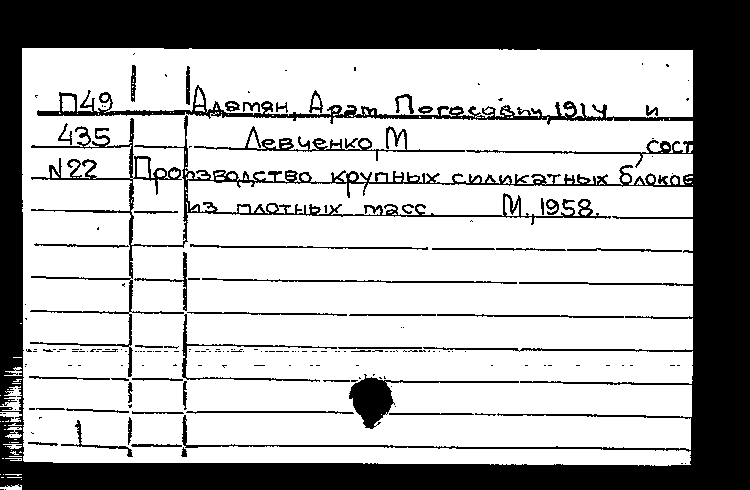 П49 Адамян, Арат Погосович, 1914 и
435 Левченко, М , сост
N22 Производство крупных силикатных блоков
из плотных масс. М., 1958.
1